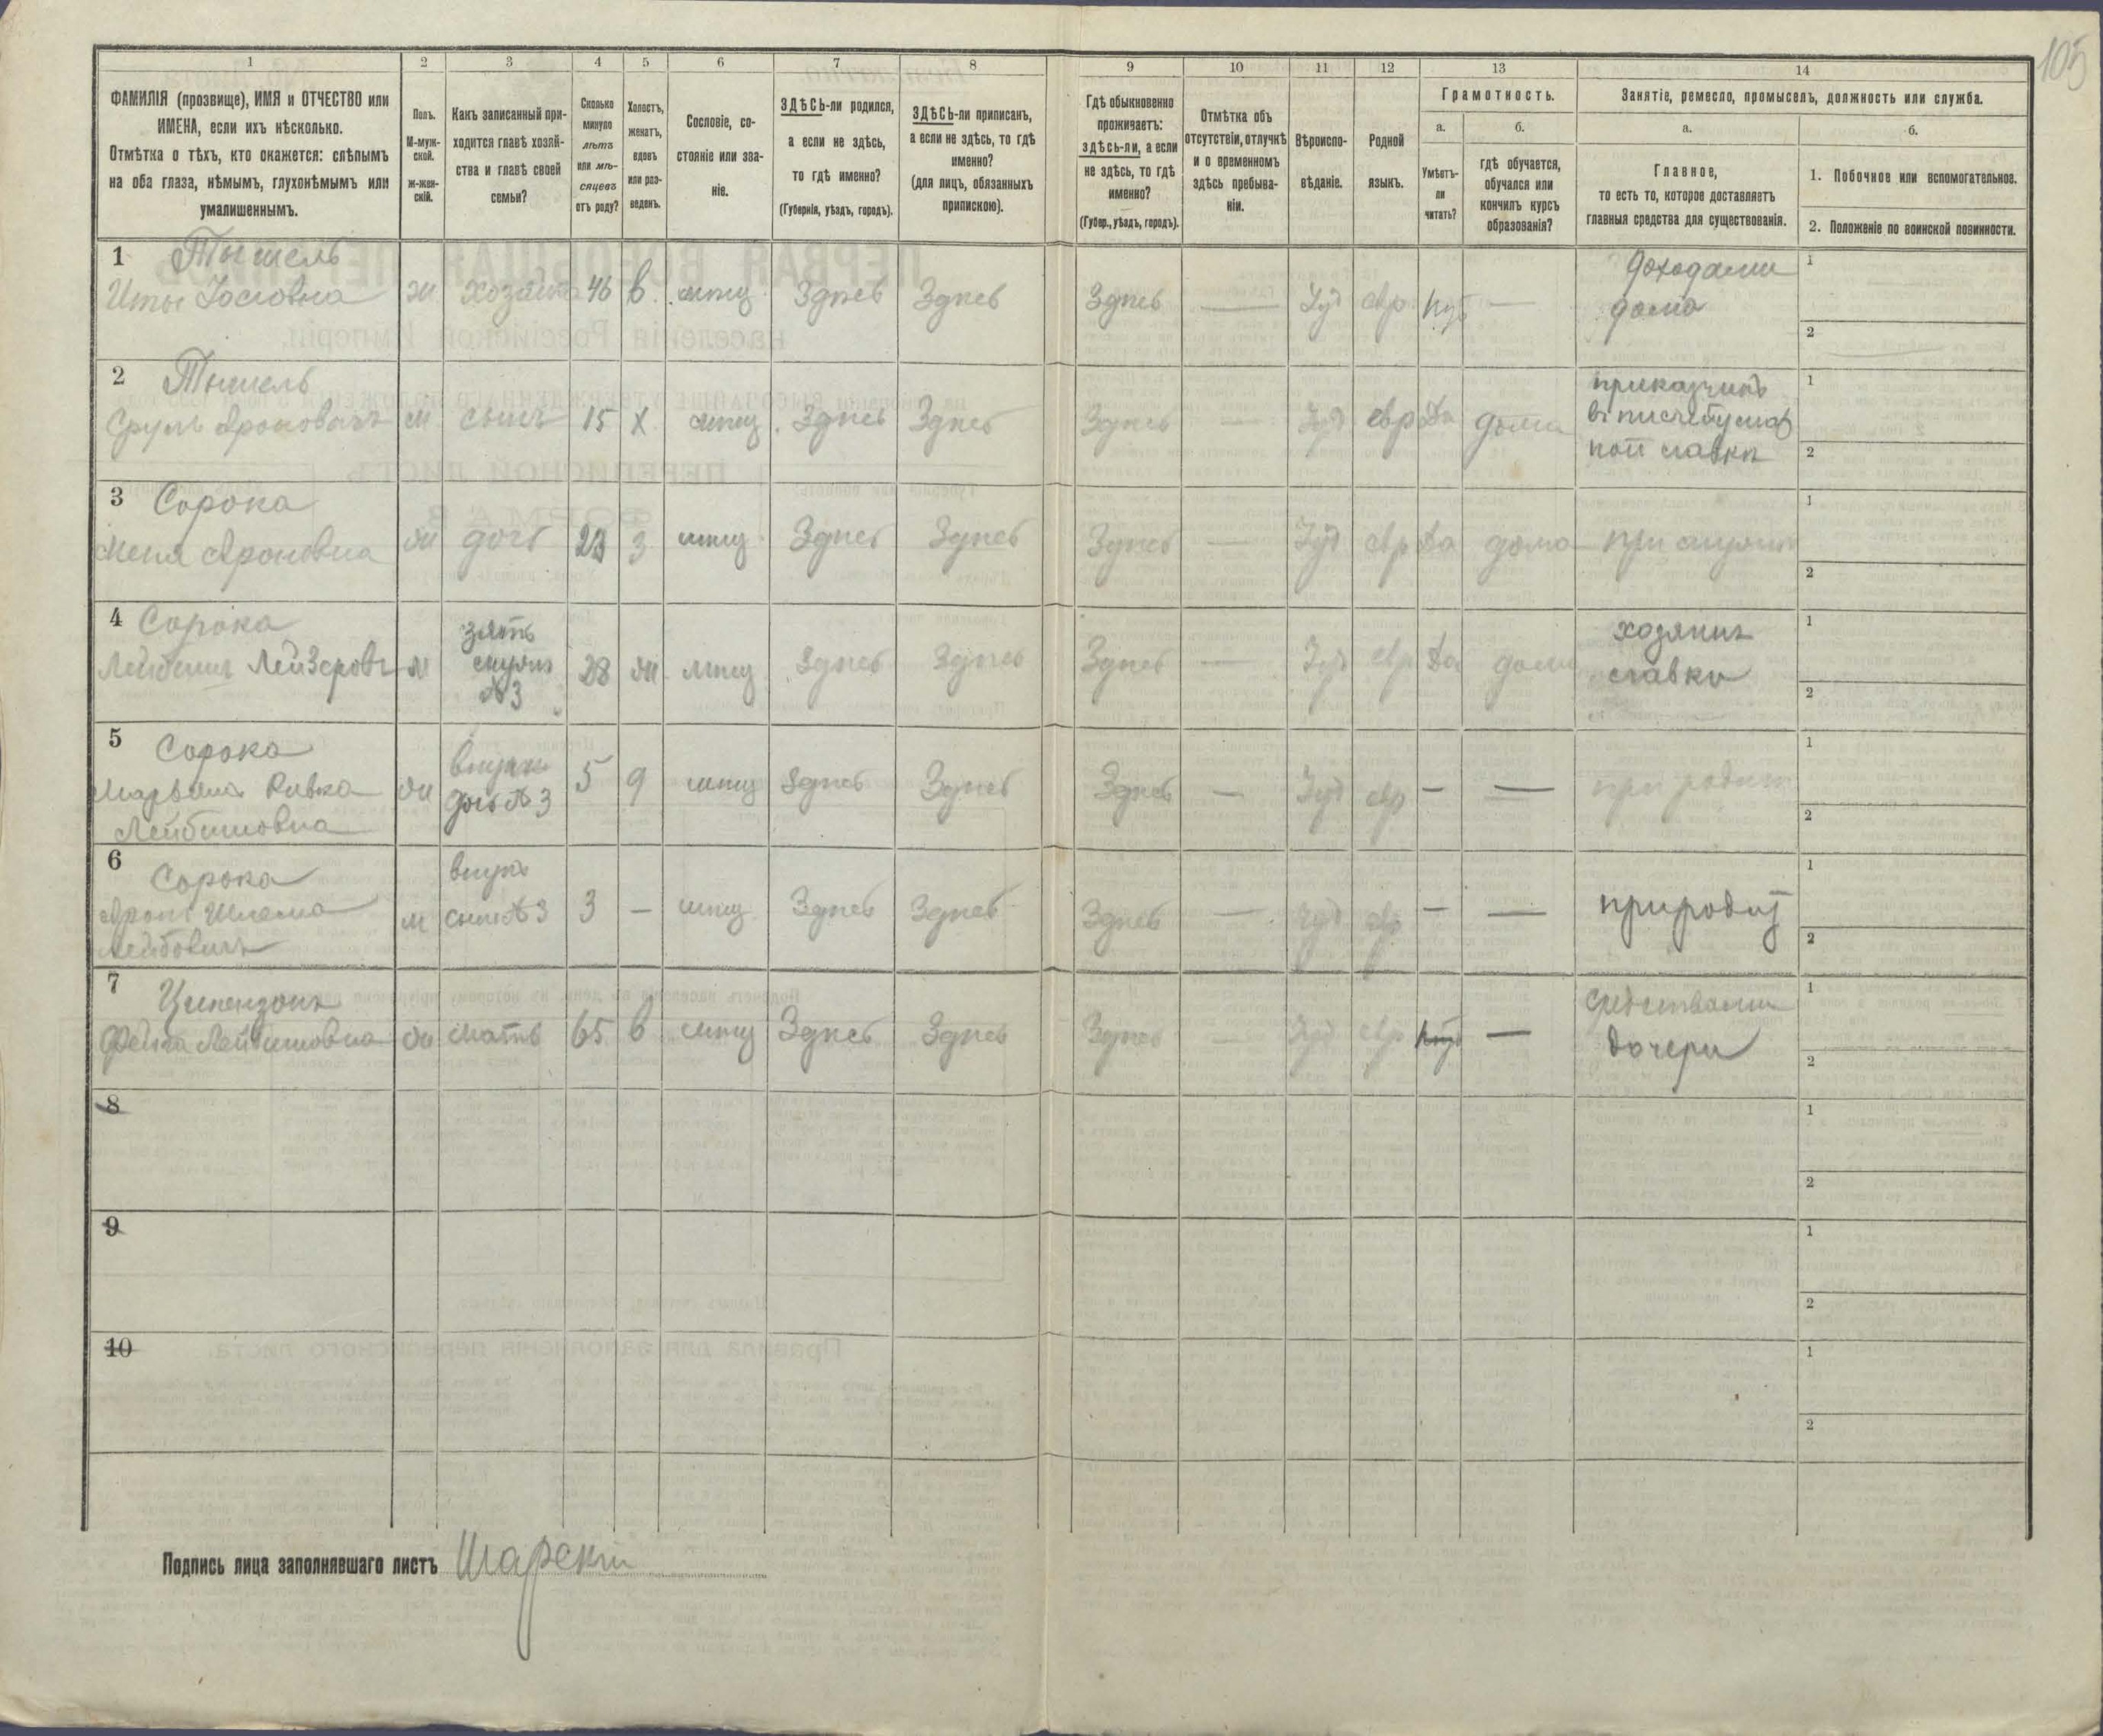 105
1 2 3 4 5 6 7 8 9 10 11 12 13 14
ФАМИЛІЯ (прозвище), ИМЯ и ОТЧЕСТВО или
ИМЕНА, если ихъ нѣсколько.
Отмѣтка о тѣхъ, кто окажется: слѣпымъ
на оба глаза, нѣмымъ, глухонѣмымъ или
умалишеннымъ.
Полъ.
М-муж-
ской.
ж-жен-
скій.
Какъ записанный при-
ходится главѣ хозяй-
ства и главѣ своей
семьи?
Сколько
минуло
лѣтъ
или мѣ-
сяцевъ
отъ роду?
Холостъ,
женатъ,
вдовъ
или раз-
веденъ.
Сословіе, со-
стояніе или зва-
ніе.
ЗДѢСЬ-ли родился,
а если не здѣсь,
то гдѣ именно?
(Губернія, уѣздъ, городъ).
ЗДѢСЬ-ли приписанъ,
а если не здѣсь, то гдѣ
именно?
(для лицъ, обязанныхъ
припискою).
Гдѣ обыкновенно
проживаетъ:
здѣсь-ли, а если
не здѣсь, то гдѣ
именно?
(Губер., уѣздъ, городъ).
Отмѣтка объ
отсутствіи, отлучкѣ
и о временномъ
здѣсь пребыва-
ніи.
Вѣроиспо-
вѣданіе.
Родной
языкъ.
Грамотность.
а.
Умѣетъ-
ли
читать?
б.
гдѣ обучается,
обучался или
кончилъ курсъ
образованія?
Занятіе, ремесло, промыселъ, должность или служба.
а.
Главное,
то есть то, которое доставляетъ
главныя средства для существованія.
б.
1. Побочное или вспомогательное.
2. Положеніе по воинской повинности.
1 Доходами 1
Іосіовна ж хозяйка 46 в мѣщ Здѣсь Здѣсь Здѣсь — Іуд евр — дома
2
2 приказчикъ 1
Сруль Ароновичъ м сынъ 15 х мѣщ Здѣсь Здѣсь Здѣсь — Іуд евр Да дома
ной лавки 2
3 Сорока 1
Ароновна ж дочь з мѣщ Здѣсь Здѣсь Здѣсь — Іуд евр Да дома при
2
4 Сорока зять хозяинъ 1
Лейзеровъ м 28 ж мѣщ Здѣсь Здѣсь Здѣсь — Іуд евр Да дома лавки
№ 3 2
5 Сорока 1
Ривка ж дочь № 3 5 мѣщ Здѣсь Здѣсь Здѣсь — Іуд евр — — при родит
Лейбишовна 2
6 Сорока внукъ 1
Аронъ Шлема м сынъ № 3 3 — мѣщ Здѣсь Здѣсь Здѣсь — Іуд евр — —
Лейбовичъ 2
7 средствами 1
Лейбишовна ж мать 65 в мѣщ Здѣсь Здѣсь Здѣсь — Іуд евр — дочери
2
8 1
2
9 1
2
10 1
2
Подпись лица заполнявшаго листъ